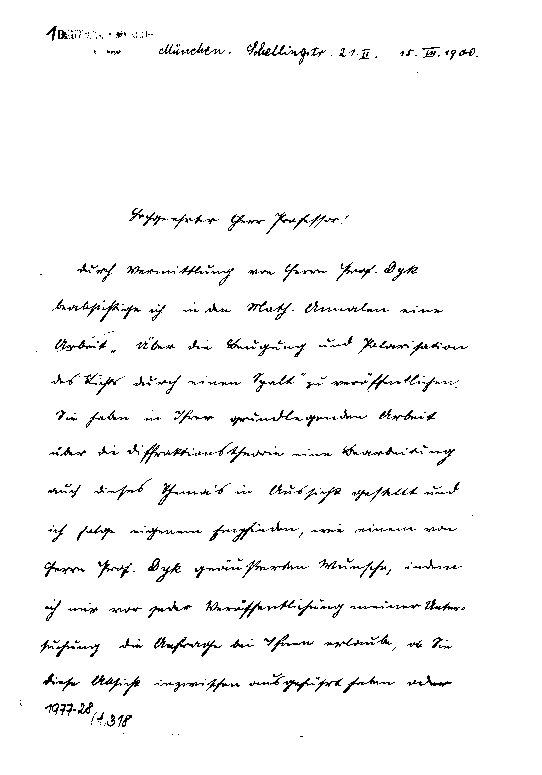 München. Schellingstr. 21.II. 15. VII. 1900.
Hochgeehrter Herr Professor!
Durch Vermittlung von Herrn Prof. Dyk
beabsichtige ich in den Math. Annalen eine
Arbeit „Über die Beugung und Polarisation
des Lichts durch einen Spalt" zu veröffentlichen.
Sie haben in Ihrer grundlegenden Arbeit
über die Diffraktionstheorie eine Bearbeitung
auch dieses Themas in Aussicht gestellt und
ich folge eigenem Empfinden, wie einem von
Herrn Prof. Dyk geäusserten Wunsche, indem
ich mir vor jeder Veröffentlichung meiner Unter-
suchung die Anfrage bei Ihnen erlaube, ob Sie
diese Absicht inzwischen ausgeführt haben oder
1977-28/A,318